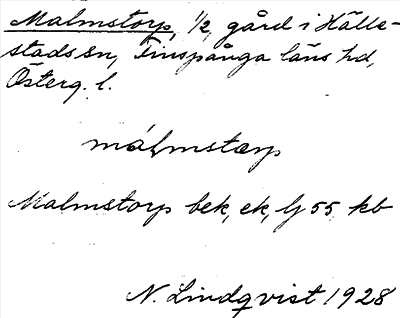 Malmstorp, 1/2, gård i Hälle-
stads sn, Finspånga läns hd,
Österg. l.
málmstærp
Malmstorp bek, ek, lj 55 kb
N. Lindqvist 1928